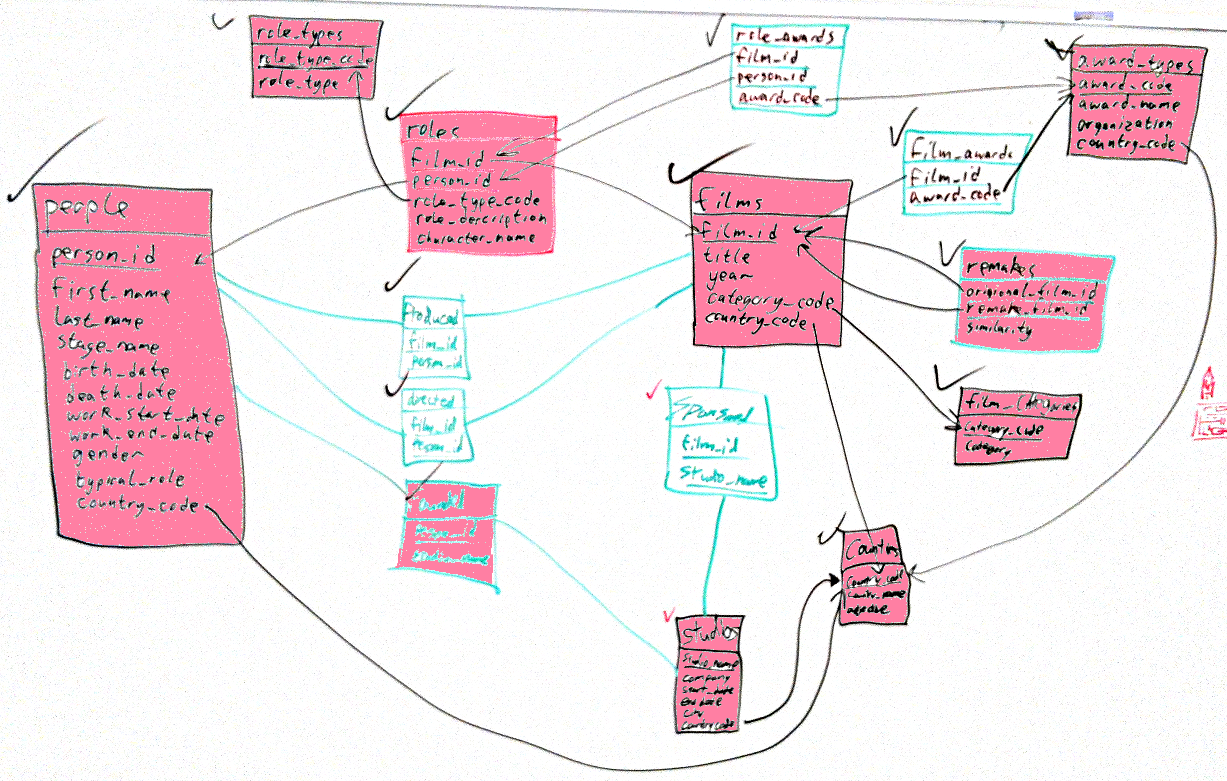 role_types
role_type_code
role_type
role_awards
film_id
person_id
award_code
award_types
award_code
award_name
organization
country_code
roles
film_id
person_id
role_type_code
role_description
character_name
film_awards
film_id
award_code
people
person_id
first_name
last_name
stage_name
birth_date
death_date
work_start_date
work_end_date
gender
typical_role
country_code
films
film_id
title
year
category_code
country_code
remakes
original_film_id
remake_film_id
similarity
produced
film_id
person_id
directed
film_id
person_id
film_categories
category_code
category
film_id
studio_name
studio_name
country_code
studios
studio_name
company
start_date
end_date
city
country code